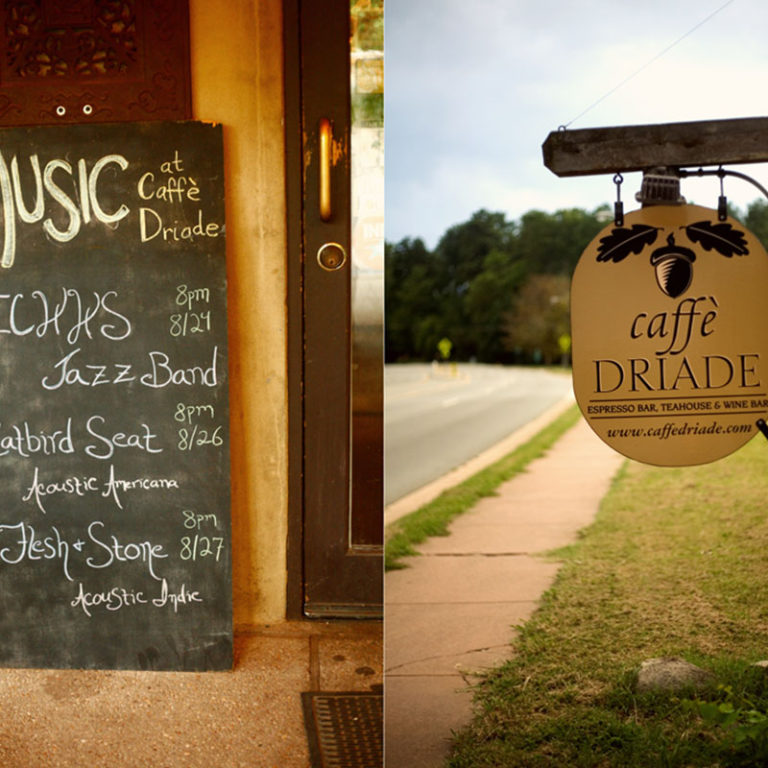 MUSIC
at
Caffè
Driade
CHHS
8pm
8/24
Jazz Band
8pm
Catbird Seat
8/26
Acoustic Americana
8pm
Flesh + Stone
8/27
Acoustic Indie
caffè
DRIADE
ESPRESSO BAR, TEAHOUSE & WINE BAR
www.caffedriade.com